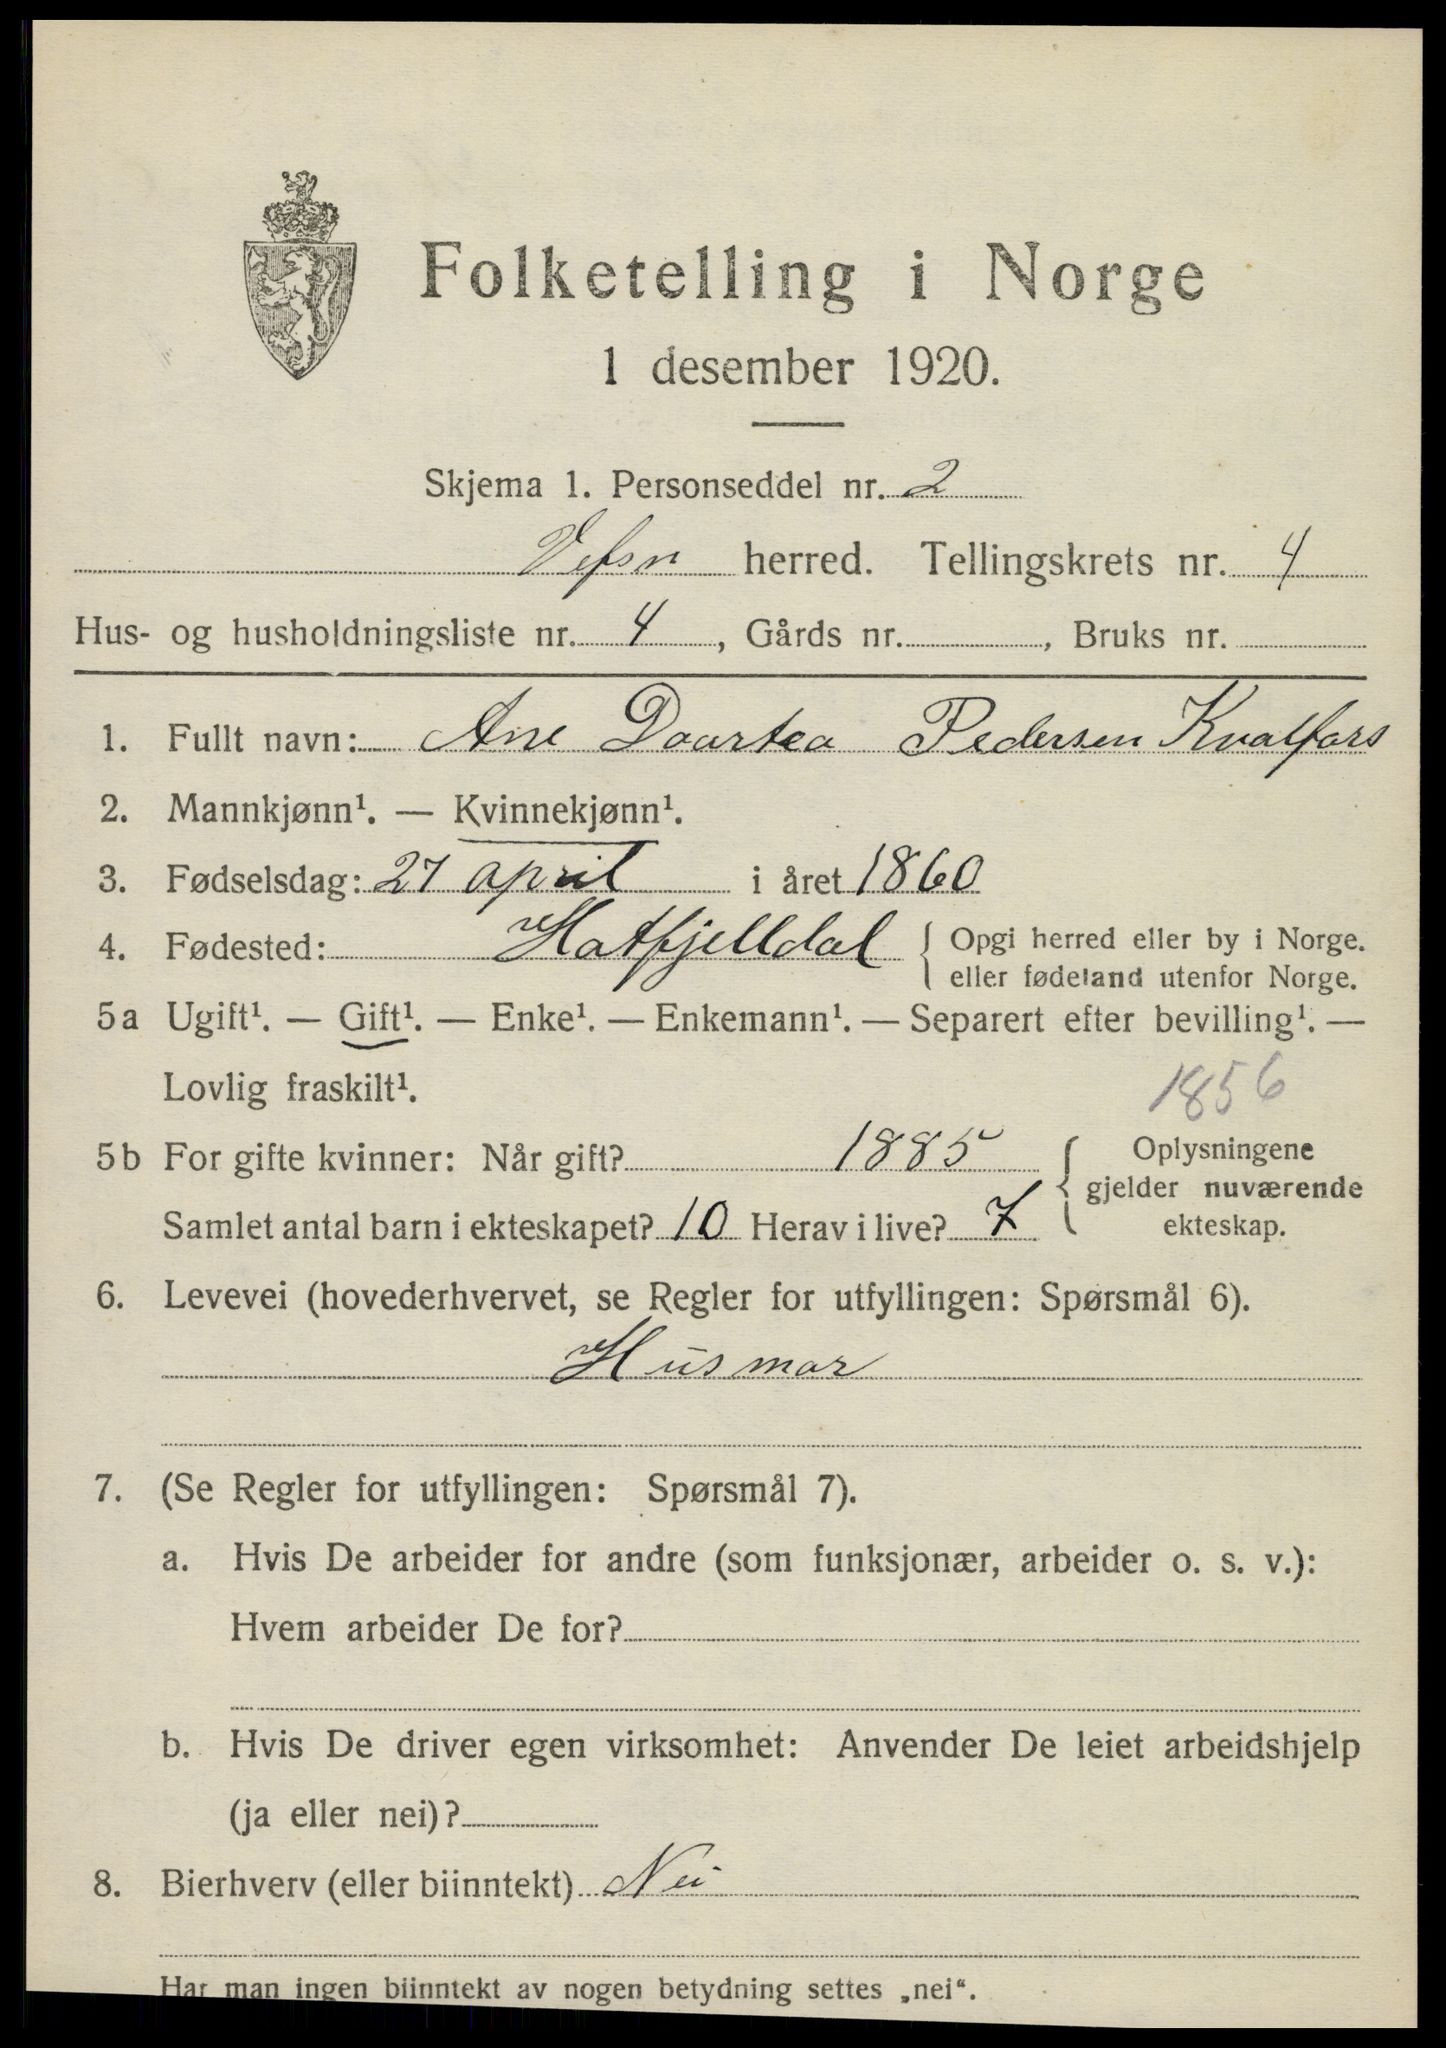 Folketelling i Norge
1 desember 1920.
Skjema 1. Personseddel nr. 2
Vefsn herred. Tellingskrets nr. 4
Hus- og husholdningsliste nr. 4, Gårds nr. , Bruks nr.
1. Fullt navn: Ane Daartea Pedersen Kvalfors
2. Mannkjønn¹. — Kvinnekjønn¹.
3. Fødselsdag: 27 april i året 1860
4. Fødested: Hatfjelldal { Opgi herred eller by i Norge.
eller fødeland utenfor Norge.
5a Ugift¹. — Gift¹. — Enke¹. — Enkemann¹. — Separert efter bevilling¹. —
Lovlig fraskilt¹.
1856
5b For gifte kvinner: Når gift? 1885 { Oplysningene
gjelder nuværende
Samlet antal barn i ekteskapet? 10 Herav i live? 7 ekteskap.
6. Levevei (hovederhvervet, se Regler for utfyllingen: Spørsmål 6).
Husmor
7. (Se Regler for utfyllingen: Spørsmål 7).
a. Hvis De arbeider for andre (som funksjonær, arbeider o. s. v.):
Hvem arbeider De for?
b. Hvis De driver egen virksomhet: Anvender De leiet arbeidshjelp
(ja eller nei)?
8. Bierhverv (eller biinntekt) Nei
Har man ingen biinntekt av nogen betydning settes „nei“.